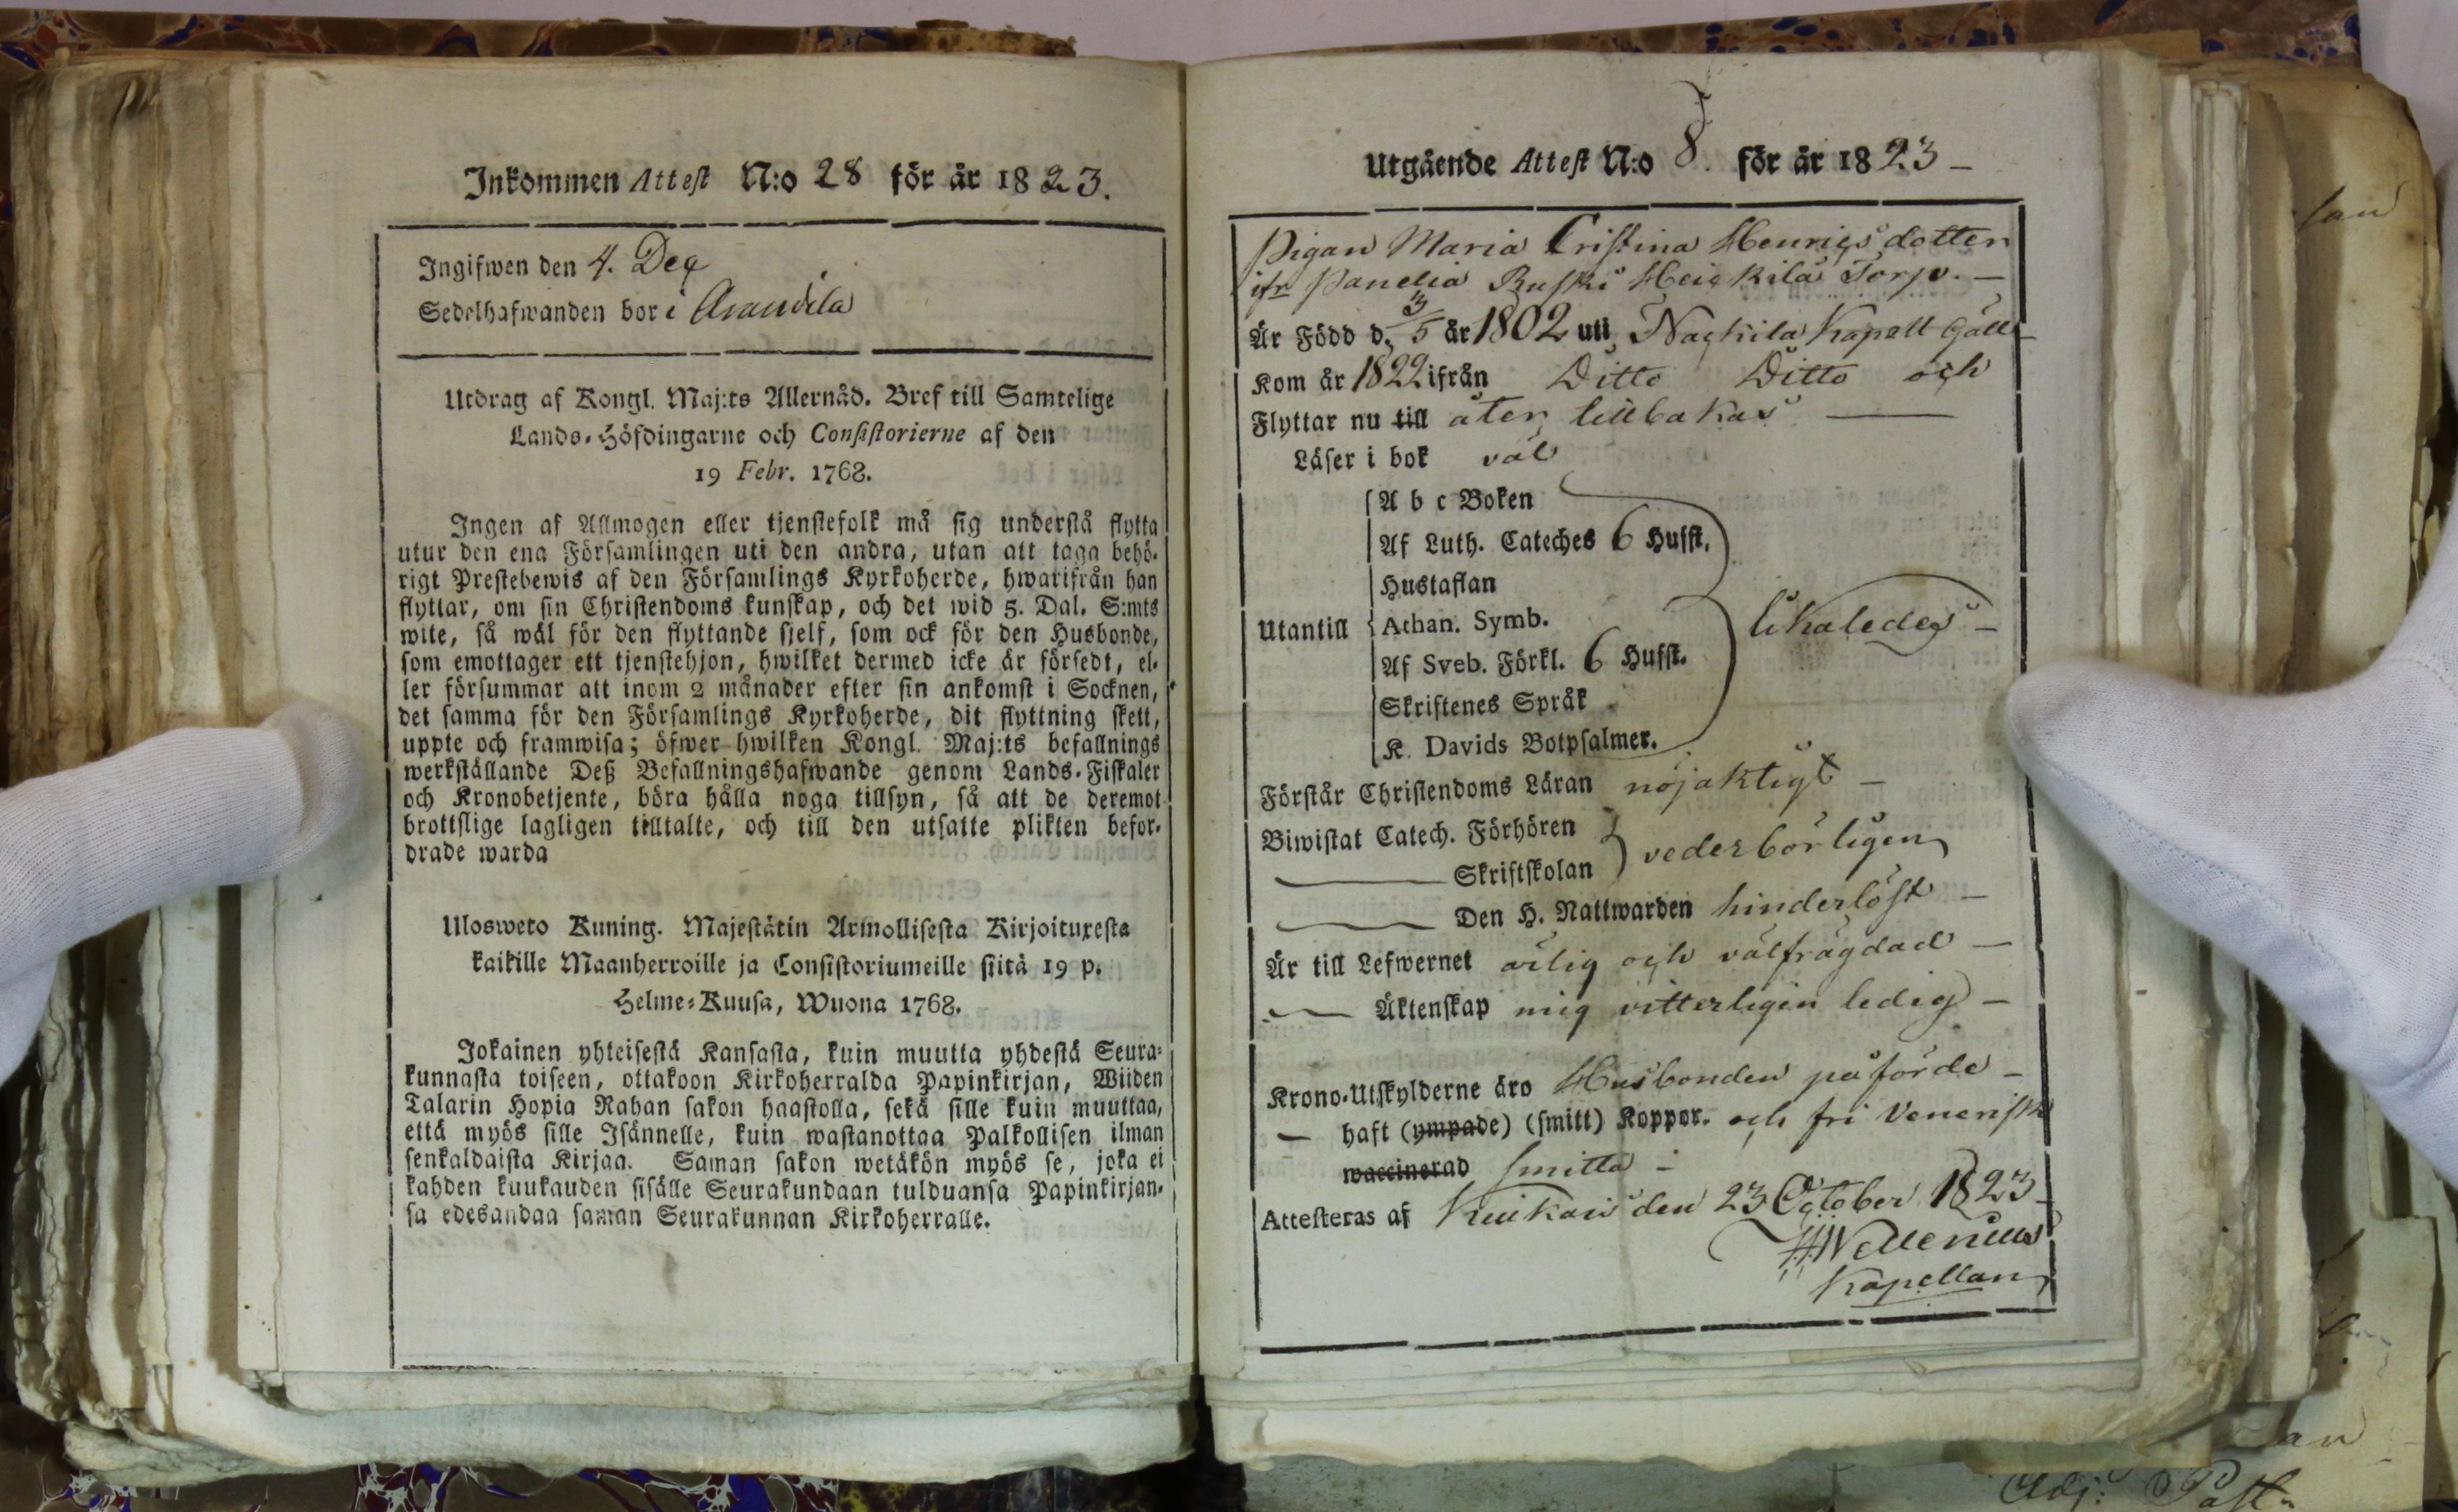 Inkommen Attest N:o 28 för år 1823.
Ingifwen den 4. Dec
Sedelhafwanden bor i Arantila
Utdrag af Kongl. Maj:ts Allernåd. Bref till Samtelige
Lands-Höfdingarne och Consistorierne af den
19 Febr. 1768.
Ingen af Allmogen eller tjenstefolk må sig understå flytta
utur den ena Församlingen uti den andra, utan att taga behö-
rigt Prestebewis af den Församlings Kyrkoherde, hwarifrån han
flyttar, om sin Christendoms kunskap, och det wid 5. Dal. S:mts
wite, så wäl för den flyttande sjelf, som ock för den Husbonde,
som emottager ett tjenstehjon, hwilket dermed icke är försedt, el-
ler försummar att inom 2 månader efter sin ankomst i Socknen,
det samma för den Församlings Kyrkoherde, dit flyttning skett,
uppte och framwisa; öfwer hwilken Kongl. Maj:ts befallnings
werkställande Deß Befallningshafwande genom Lands-Fiskaler
och Kronobetjente, böra hålla noga tillsyn, så att de deremot
brottslige lagligen tilltalte, och till den utsatte plikten befor-
drade warda
Ulosweto Kuning. Majestätin Armollisesta Kirjoituxesta
kaikille Maanherroille ja Consistoriumeille siitä 19 p.
Helme-Kuusa, Wuona 1768.
Jokainen yhteisestä Kansasta, kuin muutta yhdestä Seura-
kunnasta toiseen, ottakoon Kirkoherralda Papinkirjan, Wiiden
Talarin Hopia Rahan sakon haastolla, sekä sille kuin muuttaa,
että myös sille Isännelle, kuin wastanottaa Palkollisen ilman
senkaldaista Kirjaa. Saman sakon wetäkön myös se, joka ei
kahden kuukauden sisälle Seurakundaan tulduansa Papinkirjan-
sa edesandaa saman Seurakunnan Kirkoherralle.
Utgående Attest N:o 8. för år 1823
Pigan Maria Cristina Henricsdotter
ifr Panelia Ruski Heickilä Torp.
Är Född d. 13/5 år 1802 uti Nackila Kapell Gäll
Kom år 1822 ifrån Ditto Ditto och
Flyttar nu till åter tillbakas
Läser i bok väl
Utantill
A b c Boken
Af Luth. Cateches 6 Hufst.
Hustaflan
Athan. Symb.
Af Sveb. Förkl. 6 Hufst.
Skriftenes Språk
K. Davids Botpsalmer.
likaledes
Förstår Christendoms Läran nöjaktigt
Biwistat Catech. Förhören
Skriftskolan
vederbörligen
Den H. Nattwarden hinderlöst
Är till Lefwernet ärlig och välfrägdad
Äktenskap mig vitterligen ledig
Krono-Utskylderne äro Husbonden påförde
haft (ympade) (smitt) Koppor. och fri Venerisk
waccinerad smitta
Attesteras af Kiukais den 23 October 1823
Kapellan